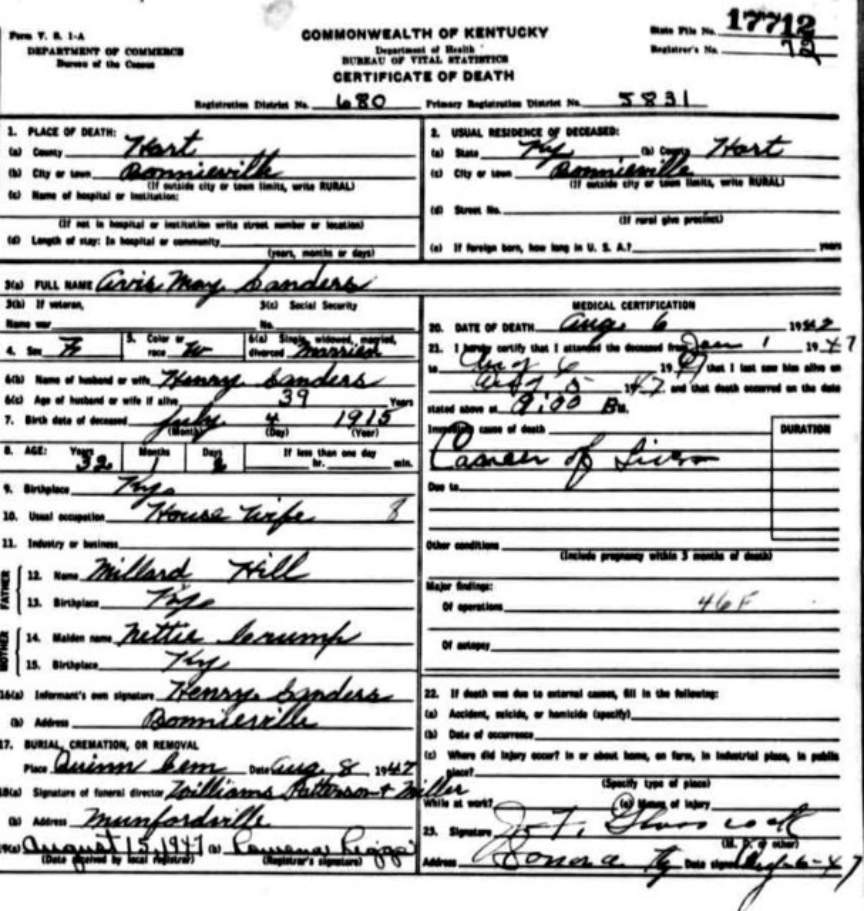 Form V. S. 1-A
DEPARTMENT OF COMMERCE
Bureau of the Census
COMMONWEALTH OF KENTUCKY
Department of Health
BUREAU OF VITAL STATISTICS
CERTIFICATE OF DEATH
State File No. 17712
Registrar's No.
Registration District No. 680 Primary Registration District No. 5831
1. PLACE OF DEATH:
(a) County Hart
(b) City or town Bonnieville
(If outside city or town limits, write RURAL)
(c) Name of hospital or institution:
(If not in hospital or institution write street number or location)
(d) Length of stay: In hospital or community
(years, months or days)
2. USUAL RESIDENCE OF DECEASED:
(a) State Ky (b) County Hart
(c) City or town Bonnieville
(If outside city or town limits, write RURAL)
(d) Street No.
(If rural give precinct)
(e) If foreign born, how long in U. S. A.? years
3(a) FULL NAME Avis May Sanders
3(b) If veteran, 3(c) Social Security
Name war No.
4. Sex F 5. Color or race W 6(a) Single, widowed, married, divorced Married
6(b) Name of husband or wife Henry Sanders
6(c) Age of husband or wife if alive 39 Years
7. Birth date of deceased July 4 1915
(Month) (Day) (Year)
8. AGE: Years Months Days If less than one day
32 1 2 hr. min.
9. Birthplace Ky
10. Usual occupation House Wife 8
11. Industry or business
FATHER
12. Name Millard Hill
13. Birthplace Ky
MOTHER
14. Maiden name Nettie Crump
15. Birthplace Ky
16(a) Informant's own signature Henry Sanders
(b) Address Bonnieville
17. BURIAL, CREMATION, OR REMOVAL
Place Quinn Cem Date Aug. 8 1947
18(a) Signature of funeral director Williams Patterson & Miller
(b) Address Munfordville
19(a) August 15, 1947 (b)
(Date received by local registrar) (Registrar's signature)
MEDICAL CERTIFICATION
20. DATE OF DEATH Aug. 6 1947
21. I hereby certify that I attended the deceased from Jan 1 1947
to Aug 6 1947 that I last saw him alive on
Aug 5 1947 and that death occurred on the date
stated above at 9:00 P.M.
Immediate cause of death DURATION
Cancer of Liver
Due to
Other conditions
(Include pregnancy within 3 months of death)
Major findings:
Of operations 46F
Of autopsy
22. If death was due to external causes, fill in the following:
(a) Accident, suicide, or homicide (specify)
(b) Date of occurrence
(c) Where did injury occur? In or about home, on farm, in industrial place, in public
place?
(Specify type of place)
While at work? (e) Means of injury
23. Signature
(M. D. or other)
Address Sonora Ky Date signed Aug-6-47